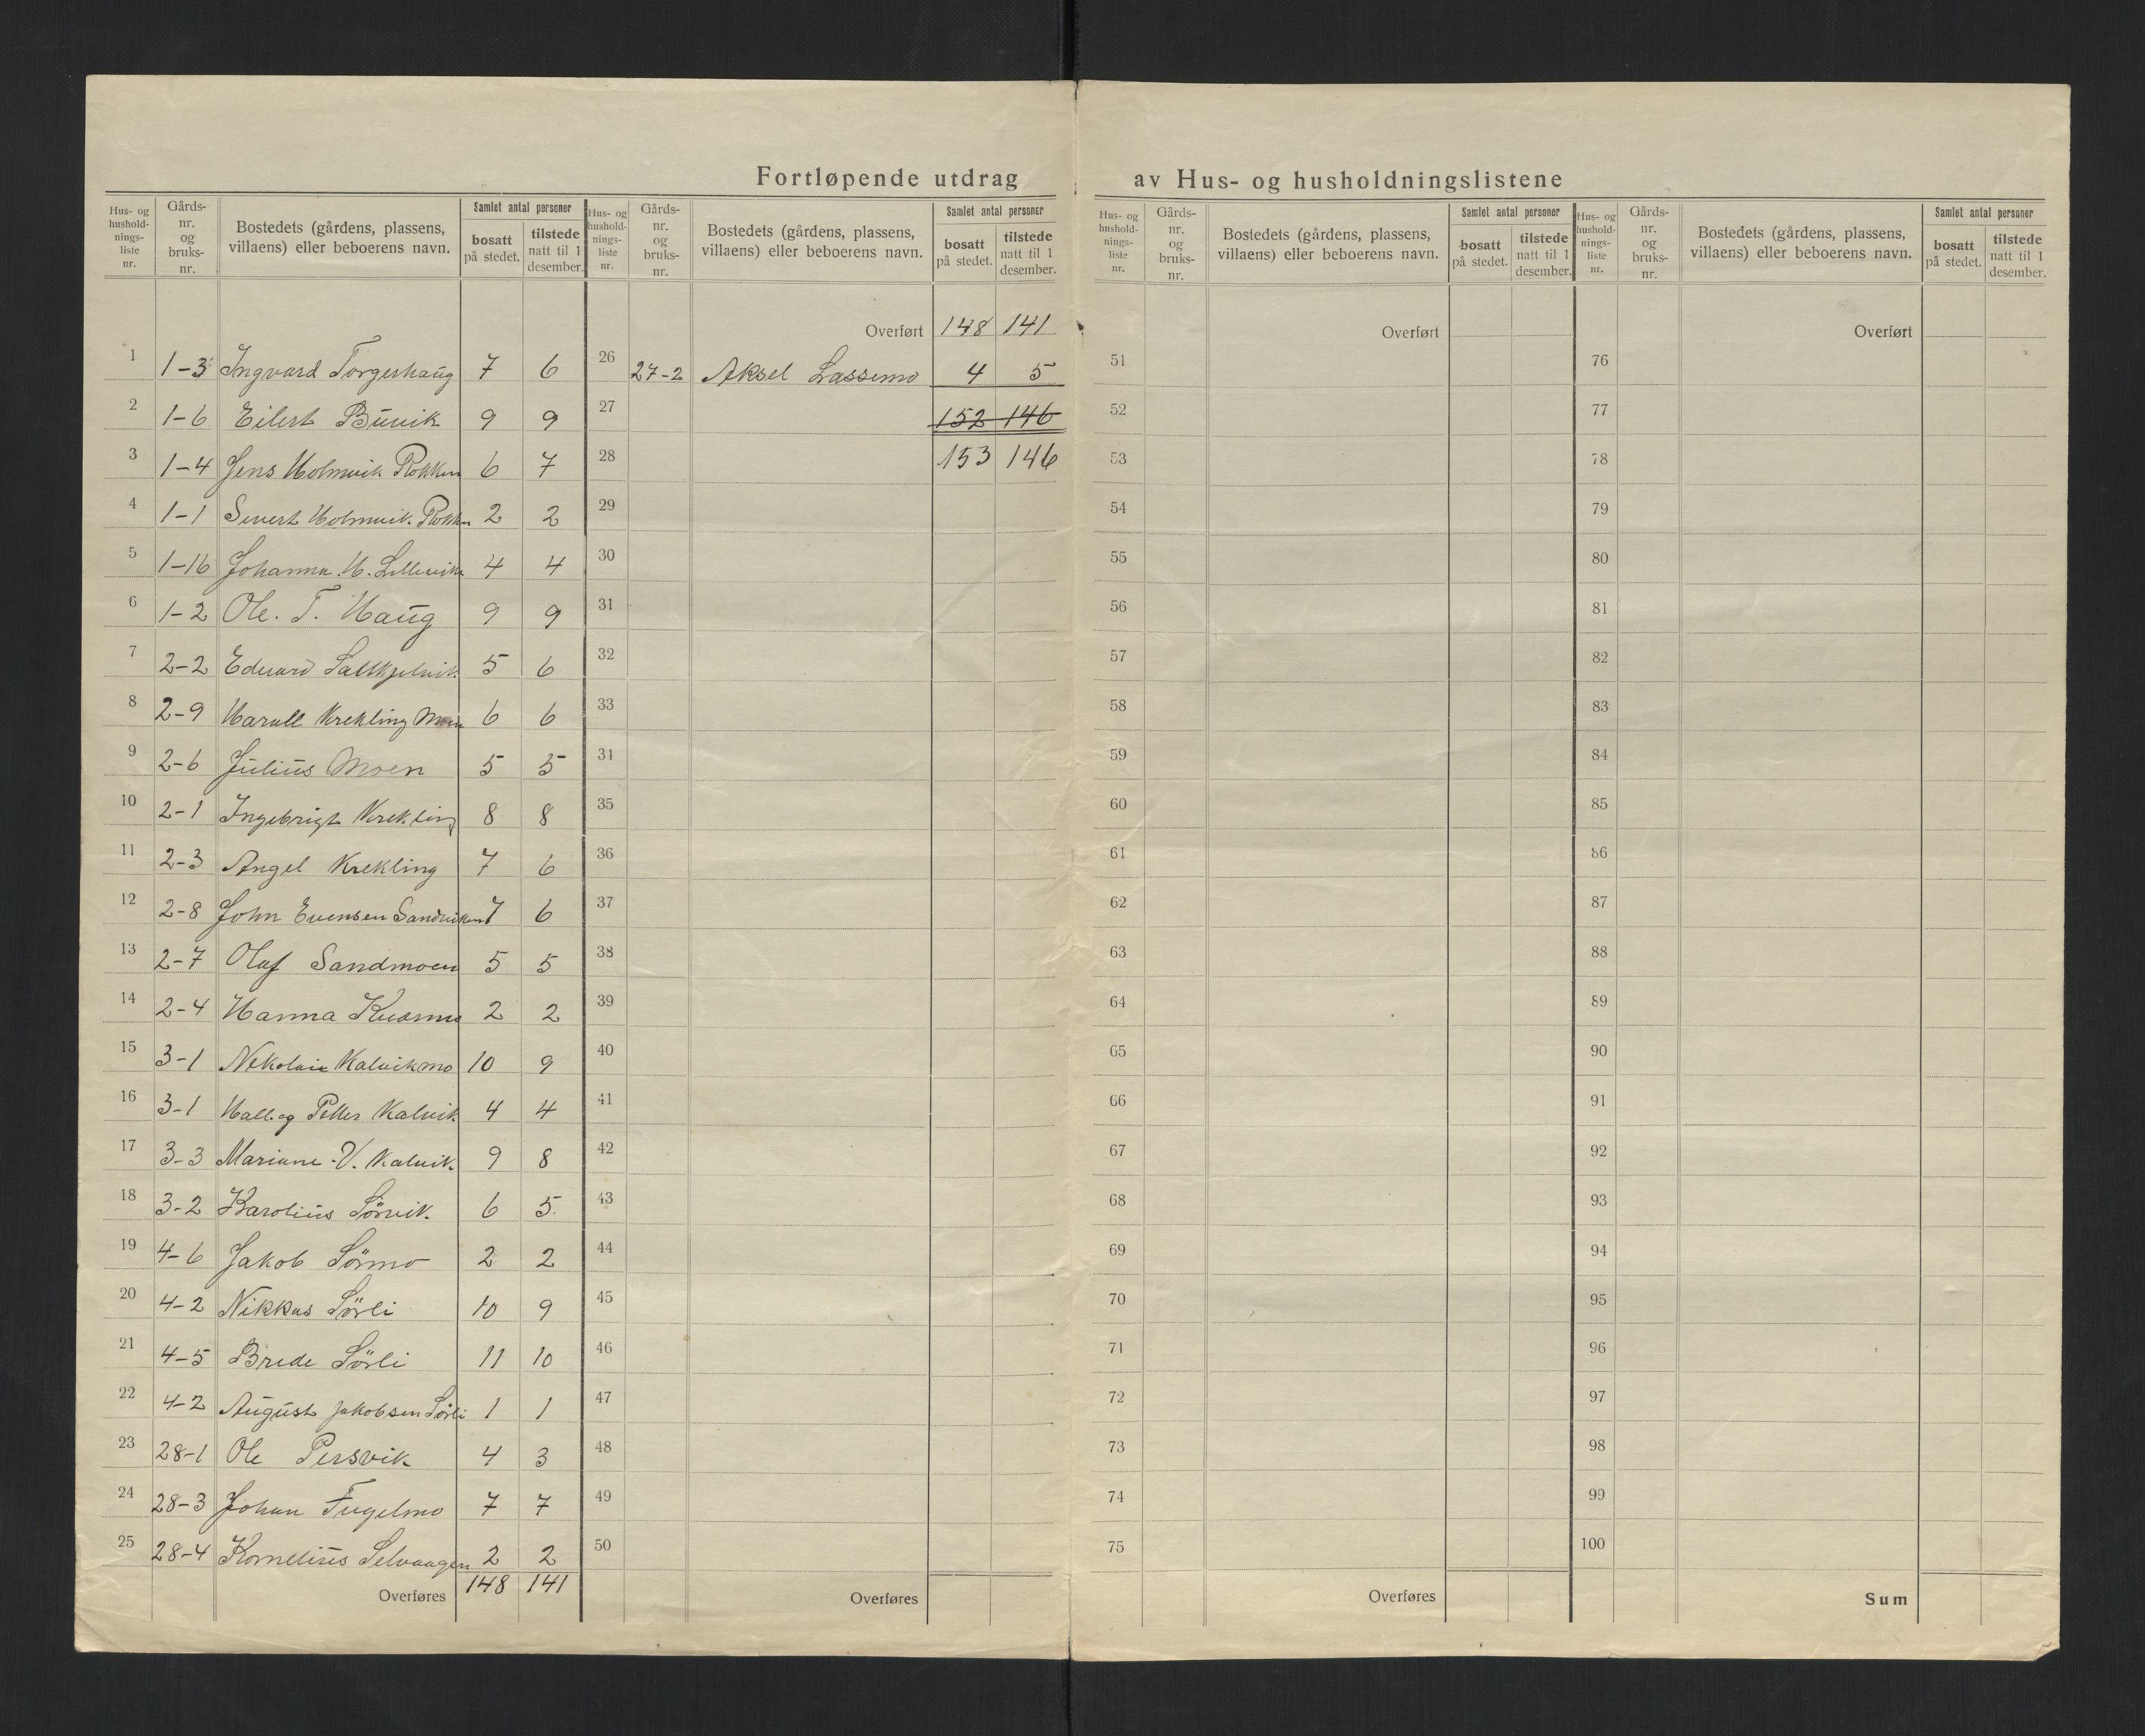 Fortløpende utdrag av Hus- og husholdningslistene
Hus- og hushold-nings-liste nr. Gårds-nr. og bruks-nr. Bostedets (gårdens, plassens, villaens) eller beboerens navn. Samlet antal personer bosatt på stedet. tilstede natt til 1 desember.
1 1-3 Ingvard Torgerhaug 7 6
2 1-6 Eilert Buvik 9 9
3 1-4 Jens Holmvik Rokken 6 7
4 1-1 Sivert Holmvik Rokken 2 2
5 1-16 Johanna H. Lillevik 4 4
6 1-2 Ole. T. Haug 9 9
7 2-2 Edvard Saltkjelvik 5 6
8 2-9 Harall Krekling Moen 6 6
9 2-6 Julius Moen 5 5
10 2-1 Ingebrigt Krekling 8 8
11 2-3 Angel Krekling 7 6
12 2-8 John Evensen Sandviken 7 6
13 2-7 Olaf Sandmoen 5 5
14 2-4 Hanna Kværnmo 2 2
15 3-1 Nekolai Kalvikmo 10 9
16 3-1 Peller Kalvik 4 4
17 3-3 Mariane V. Kalvik 9 8
18 3-2 Karolius Sörvik 6 5
19 4-6 Jakob Sörmo 2 2
20 4-2 Nikkus Sörli 10 9
21 4-5 Brede Sörli 11 10
22 4-2 August Jakobsen Sörli 1 1
23 28-1 Ole Persvik 4 3
24 28-3 Johan Fugelmo 7 7
25 28-4 Kornelius Selvaagen 2 2
Overføres 148 141
Hus- og hushold-nings-liste nr. Gårds-nr. og bruks-nr. Bostedets (gårdens, plassens, villaens) eller beboerens navn. Samlet antal personer bosatt på stedet. tilstede natt til 1 desember.
Overført 148 141
26 27-2 Aksel Lassemo 4 5
27 152 146
28 153 146
29
30
31
32
33
34
35
36
37
38
39
40
41
42
43
44
45
46
47
48
49
50
Overføres
Hus- og hushold-nings-liste nr. Gårds-nr. og bruks-nr. Bostedets (gårdens, plassens, villaens) eller beboerens navn. Samlet antal personer bosatt på stedet. tilstede natt til 1 desember.
Overført
51
52
53
54
55
56
57
58
59
60
61
62
63
64
65
66
67
68
69
70
71
72
73
74
75
Overføres
Hus- og hushold-nings-liste nr. Gårds-nr. og bruks-nr. Bostedets (gårdens, plassens, villaens) eller beboerens navn. Samlet antal personer bosatt på stedet. tilstede natt til 1 desember.
Overført
76
77
78
79
80
81
82
83
84
85
86
87
88
89
90
91
92
93
94
95
96
97
98
99
100
Sum